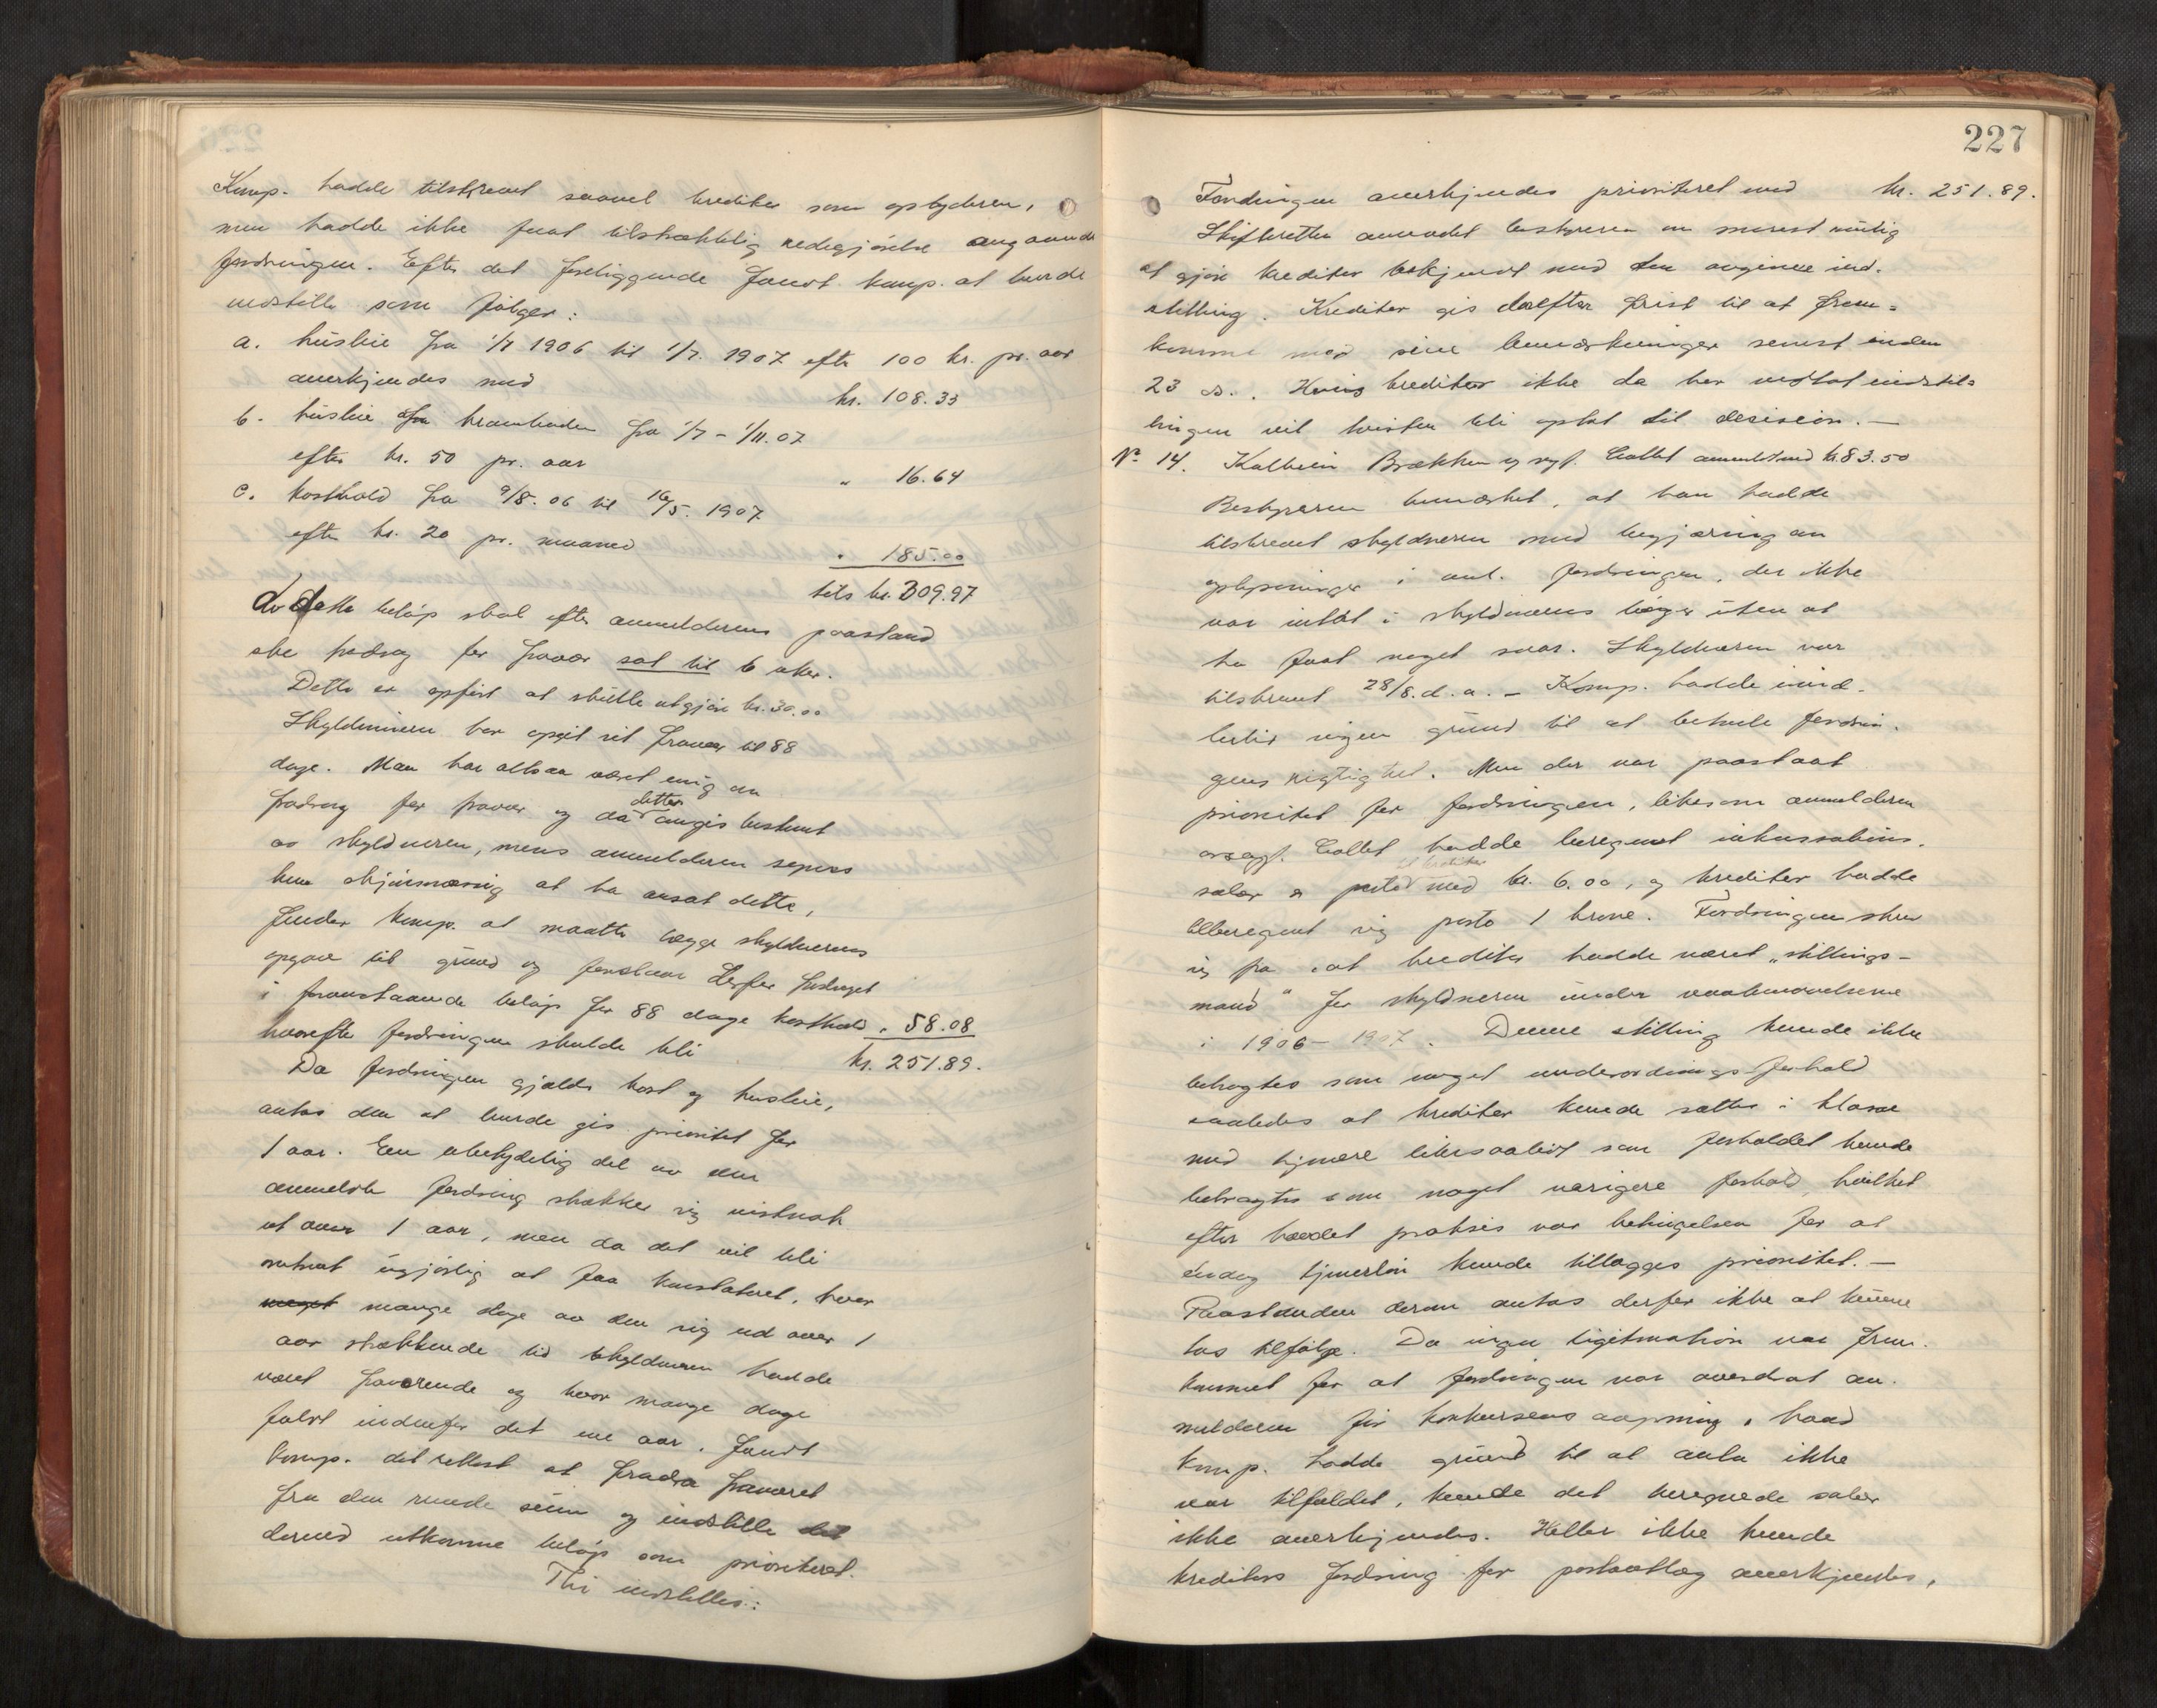 Komp. hadde tilskrevet saavel kreditor som opbyderen,
men hadde ikke faat tilstrækkelig redegjørelse angaaende
fordringen. Efter det foreliggende fandt komp. at burde
indstille som følger:
a. husleie fra 1/7 1906 til 1/7. 1907 efter 100 kr. pr. aar
anerkjendes med kr. 108.33
b. husleie for kramboden fra 1/7 - 1/11.07
efter kr. 50 pr. aar " 16.64
c. kosthold fra 9/8.06 til 16/5. 1907
efter kr. 20 pr. maaned " 185.00
tils kr. 309.97
Av dette beløp skal efter anmelderens paastand
ske fradrag for fravær sat til 6 uker.
Dette er opført at skulle utgjøre kr. 30.00
Skyldneren har opgit sit fravær til 88
dage. Man har altsaa været enig om
fradrag for fravær og da dette angis bestemt
av skyldneren, mens anmelderen synes
kun skjønsmæssig at ha ansat dette,
finder komp. at maatte lægge skyldnerens
opgave til grund og foreslaar derfor fradraget
i foranstaaende beløp for 88 dage kosthold " 58.08
hvorefter fordringen skulde bli kr. 251.89.
Da fordringen gjælder kost og husleie,
antas den at burde gis prioritet for
1 aar. En ubetydelig del av den
anmeldte fordring strækker sig vistnok
ut over 1 aar, men da det vil bli
omtrent ugjørlig at faa konstateret, hvor
meget mange dage av den sig ud over 1
aar strækkende tid skyldneren hadde
været fraværende og hvor mange dage
faldt indenfor det ene aar, fandt
komp. det rettest at fradra fraværet
fra den runde sum og indstille det
derved utkomne beløp som prioriteret.
Thi indstilles:
227
Fordringen anerkjendes prioriteret med kr. 251.89.
Skifteretten anmodet bestyreren om snarest mulig
at gjøre kreditor bekjendt med den avgivne ind-
stilling. Kreditor gis derefter frist til at frem-
komme med sine bemærkninger senest inden
23 ds.. Hvis kreditor ikke da har vedtat indstil-
lingen vil tvisten bli optat til desision. —
No 14. Brækken og sagf. Collet anmeldt med kr. 83.50
Bestyreren bemærket, at han hadde
tilskrevet skyldneren med begjæring om
oplysninger i anl. fordringen, der ikke
var indtat i skyldnerens bøger uten at
ha faat noget svar. Skyldneren var
tilskrevet 28/8. d. a. — Komp. hadde imid-
lertid ingen grund til at betvile fordrin-
gens rigtighet. Men der var paastaat
prioritet for fordringen, likesom anmelderen
sagf. Collet hadde beregnet inkassations-
salær og porto til kreditor med kr. 6.00, og kreditor hadde
tilberegnet sig porto 1 krone. Fordringen skrev
sig fra at kreditor hadde været „stillings-
mand" for skyldneren under vaabenøvelserne
i 1906 - 1907. Denne stilling kunde ikke
betragtes som noget underordnings-forhold
saaledes at kreditor kunde sættes i klasse
med tjenere likesaalidt som forholdet kunde
betragtes som noget varigere forhold, hvilket
efter hævdet praksis var betingelsen for at
endog tjenerløn kunde tillægges prioritet. —
Paastanden derom antas derfor ikke at kunne
tas tilfølge. Da ingen legitimation var frem-
kommet for at fordringen var overdrat an-
melderen før konkursens aapning, hvad
komp. hadde grund til at anta ikke
var tilfældet, kunde det beregnede salær
ikke anerkjendes. Heller ikke kunde
kreditors fordring for portoutlæg anerkjendes,